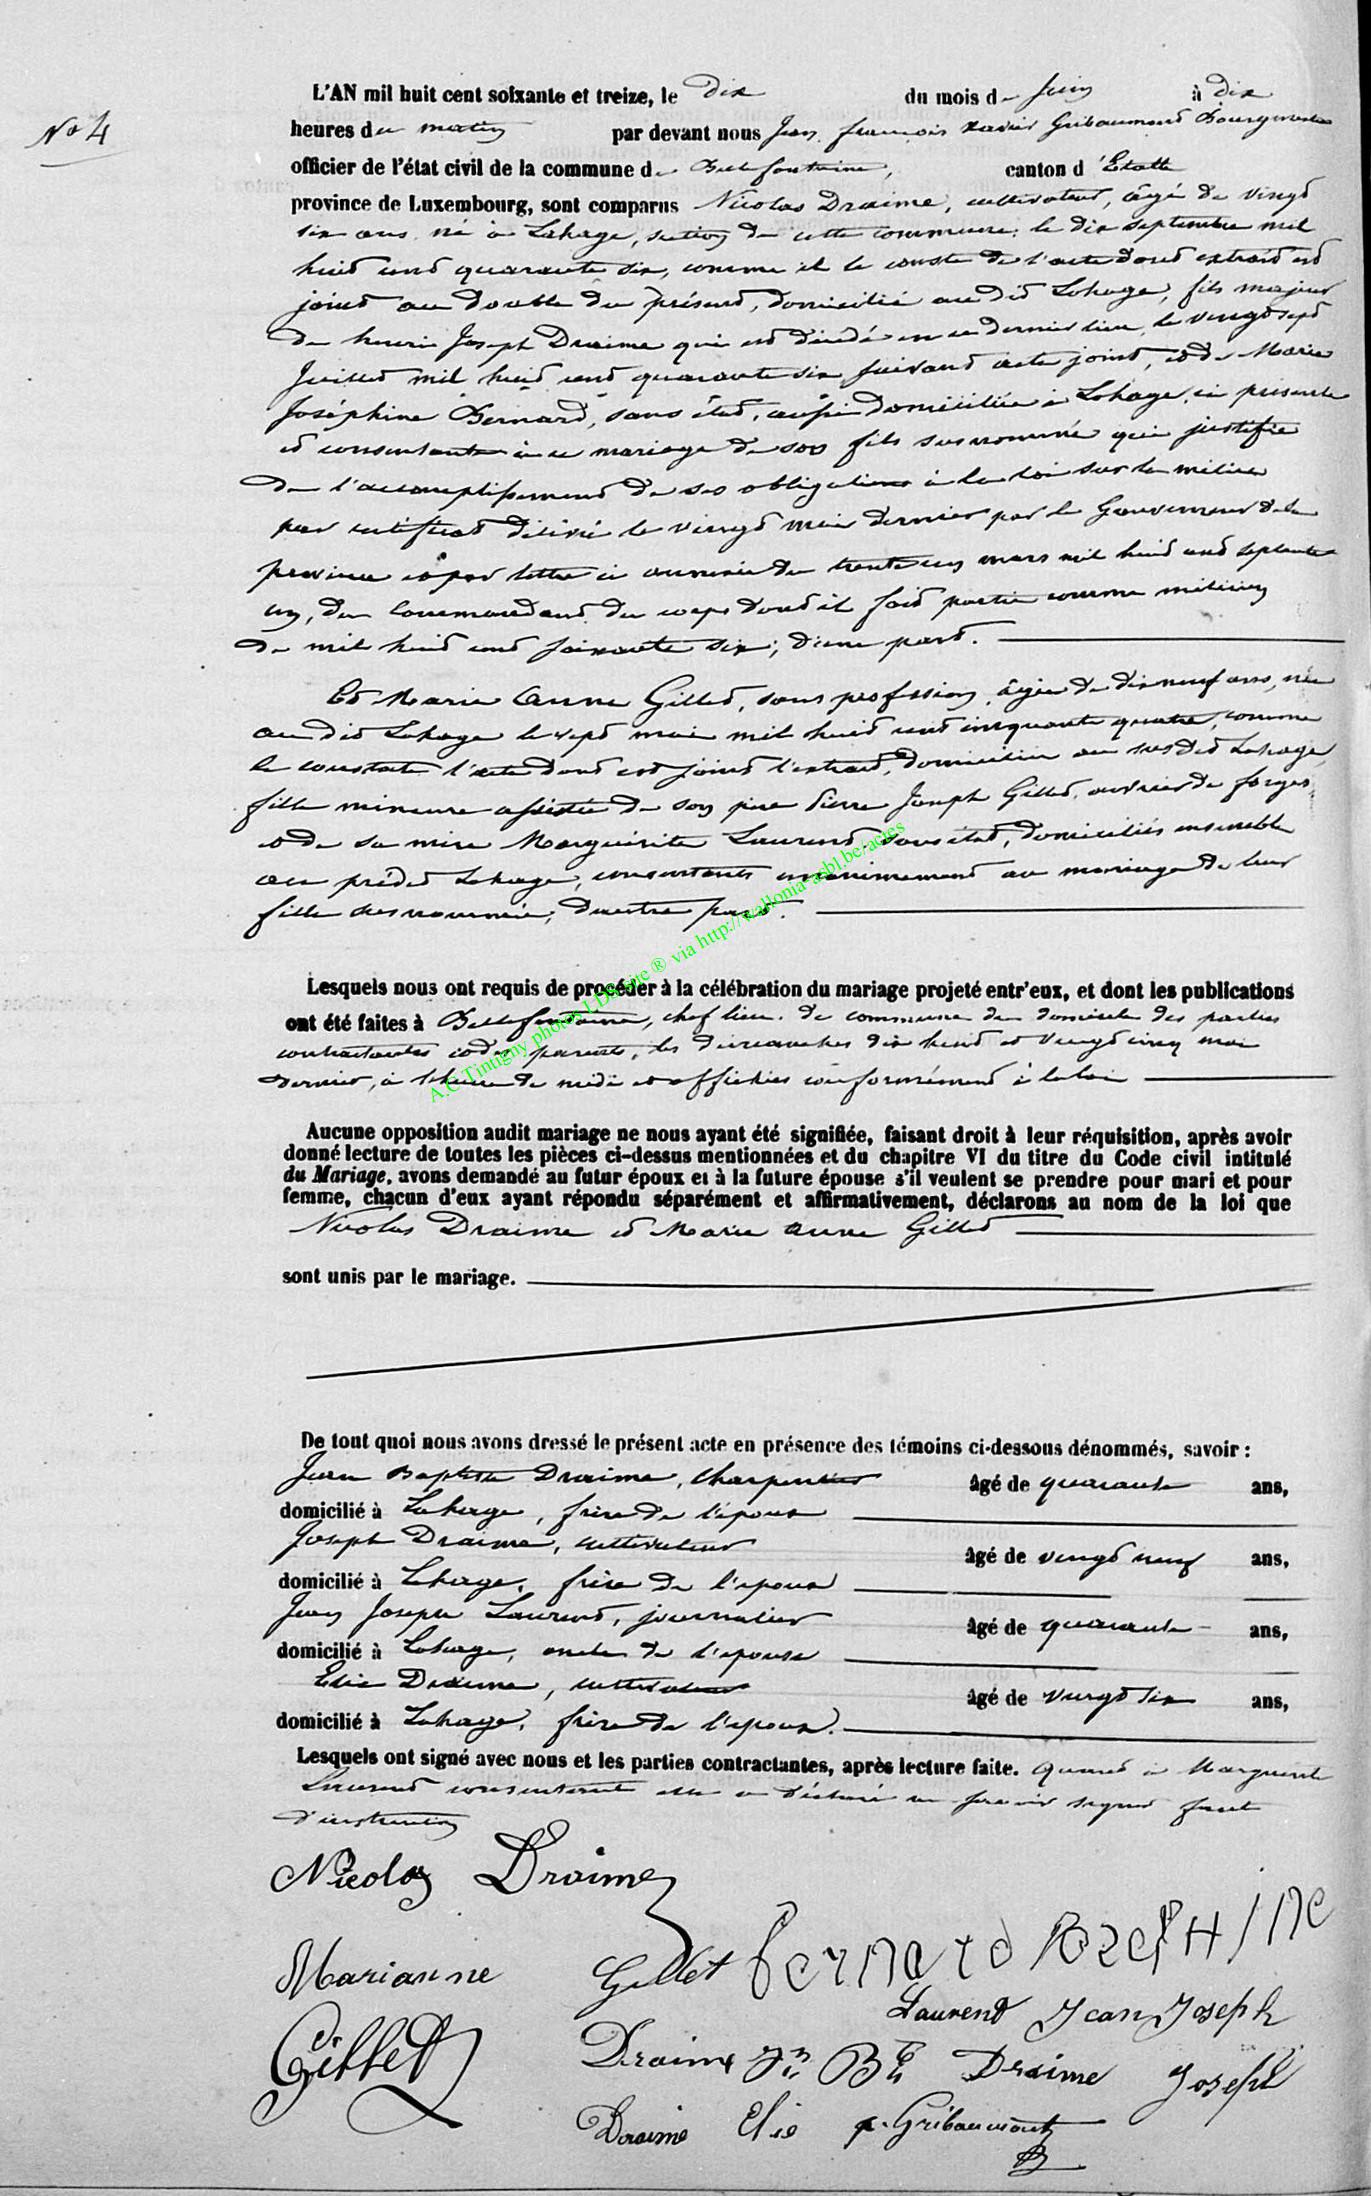 N° 4
L'AN mil huit cent soixante et treize, le dix du mois de juin à dix
heures du matin par devant nous Jean François Xavier Gribaumont Bourgmestre
officier de l'état civil de la commune de Bellefontaine, canton d'Etalle
province de Luxembourg, sont comparus Nicolas Draime, cultivateur, âgé de vingt
six ans né à Lahage, section de cette commune, le dix septembre mil
huit cent quarante six, comme il le conste de l'acte dont extrait est
joint au double du présent, domicilié au dit Lahage, fils majeur
de henri Joseph Draime qui est décédé en ce dernier lieu, le vingt sept
Juillet mil huit cent quarante six suivant acte joint, et de Marie
Joséphine Bernard, sans état, aussi domiciliée à Lahage, ci présente
et consentante à ce mariage de son fils susnommé qui justifie
de l'accomplissement de ses obligations à la loi sur la milice
par certificat délivré le vingt mai dernier par le Gouverneur de la
province et par lettre ci annexée du trente un mars mil huit cent septante
un, du Commandant du corps dont il fait partie comme milicien
de mil huit cent soixante six; d'une part.
Et Marie Anne Gillet, sans profession, âgée de dix neuf ans, née
au dit Lahage le sept mai mil huit cent cinquante quatre, comme
le constate l'acte dont est joint l'extrait, domiciliée au susdit Lahage,
fille mineure assistée de son père Pierre Joseph Gillet, ouvrier de forges,
et de sa mère Marguérite Laurent sans état, domiciliés ensemble
au prédit Lahage, consentants unanimement au mariage de leur
fille susnommée; d'autre part.
Lesquels nous ont requis de procéder à la célébration du mariage projeté entr'eux, et dont les publications
ont été faites à Bellefontaine, chef lieu de commune du domicile des parties
contractantes et des parents, les dimanches dix huit et vingt cinq mai
dernier, à l'heure de midi et affichées conformément à la loi
Aucune opposition audit mariage ne nous ayant été signifiée, faisant droit à leur réquisition, après avoir
donné lecture de toutes les pièces ci-dessus mentionnées et du chapitre VI du titre du Code civil intitulé
du Mariage, avons demandé au futur époux et à la future épouse s'il veulent se prendre pour mari et pour
femme, chacun d'eux ayant répondu séparément et affirmativement, déclarons au nom de la loi que
Nicolas Draime et Marie Anne Gillet
sont unis par le mariage.
De tout quoi nous avons dressé le présent acte en présence des témoins ci-dessous dénommés, savoir :
Jean Baptiste Draime, charpentier âgé de quarante ans,
domicilié à Lahage, frère de l'époux
Joseph Draime, cultivateur âgé de vingt neuf ans,
domicilié à Lahage, frère de l'époux
Jean Joseph Laurent, journalier âgé de quarante ans,
domicilié à Lahage, oncle de l'épouse
Elie Draime, cultivateur âgé de vingt six ans,
domicilié à Lahage, frère de l'époux.
Lesquels ont signé avec nous et les parties contractantes, après lecture faite. Quant à Marguerite
Laurent consentante elle a déclaré ne savoir signer faute
d'instruction
Nicolas Draime
Marianne Gillet Bernard JozepHine
Laurent Jean Joseph
Gillet Draime Jn Bte Draime Joseph
Draime Elie x. Gribaumont
A.C.Tintigny photos LDusite ® via http://wallonia-asbl.be/actes